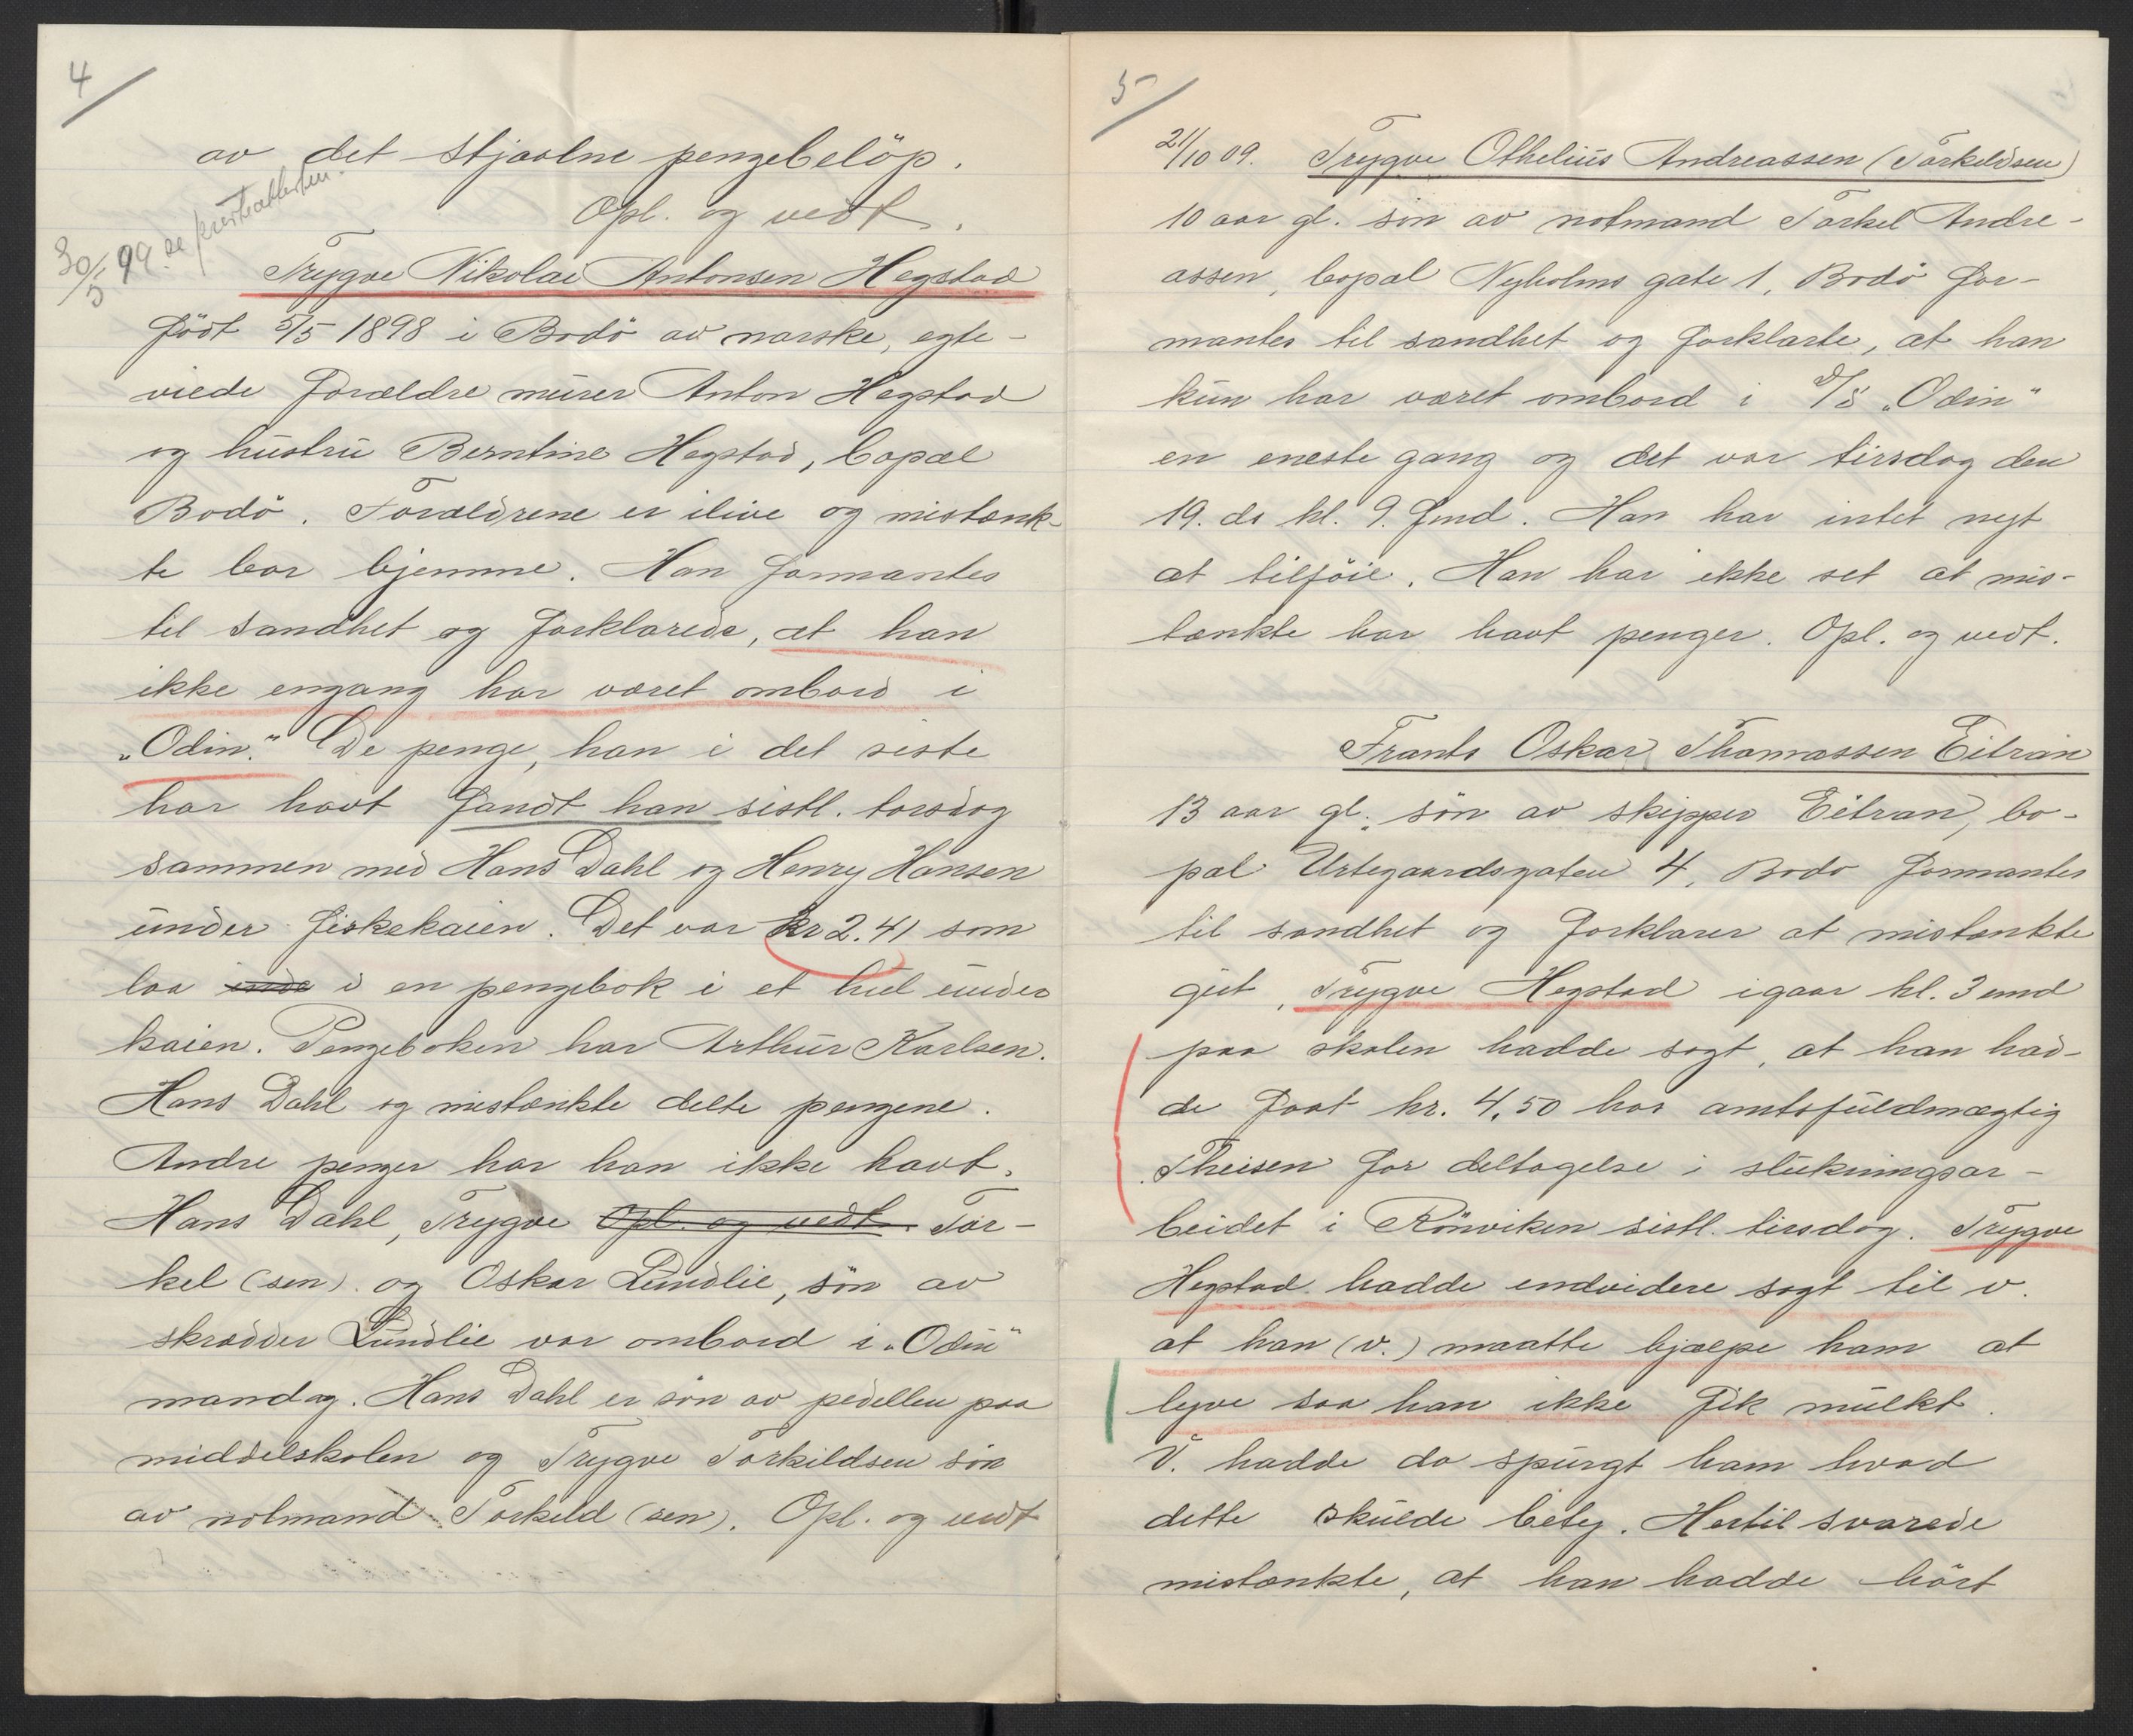 4
av det stjaalne pengebelöp.
Opl. og vedt.
30/5 99 se presteattesten.
Trygve Nikolai Antonsen Hegstad
födt 5/5 1898 i Bodö av norske, egte-
viede forældre murer Anton Hegstad
og hustru Berntine Hegstad, bopæl
Bodö. Forældrene er ilive og mistænk-
te bor hjemme. Han formantes
til sandhet og forklarede, at han
ikke engang har været ombord i
„Odin." De penge, han i det siste
har havt fandt han sistl. torsdag
sammen med Hans Dahl og Henry Hansen
under fiskekaien. Det var kr 2.41 som
laa inde i en pengebok i et hul under
kaien. Pengeboken har Arthur Karlsen.
Hans Dahl og mistænkte delte pengene.
Andre penger har han ikke havt.
Hans Dahl, Trygve Opl. og vedt. Tor-
kel (sen). og Oskar Lundlie, sön av
skrædder Lundlie var ombord i „Odin"
mandag. Hans Dahl er sön av pedellen paa
middelskolen og Trygve Torkildsen sön
av notmand Torkeld (sen). Opl. og vedt
5
21/10 09. Trygve Othelius Andreassen (Torkeldsen)
10 aar gl. sön av notmand Torkel Andre-
assen, bopæl Nyholms gate 1, Bodö for-
mantes til sandhet og forklarte, at han
kun har været ombord i d/s „Odin"
en eneste gang og det var tirsdag den
19. ds kl. 9. fmd. Han har intet nyt
at tilföie. Han har ikke set at mis-
tænkte har havt penger. Opl. og vedt.
Frants Oskar Thomassen Eitran
13 aar gl. sön av skipper Eitran, bo-
pæl Urtegaardsgaten 4, Bodö formantes
til sandhet og forklarer at mistænkte
gut, Trygve Hegstad igaar kl. 3 emd
paa skolen hadde sagt, at han had-
de faat kr. 4,50 hos amtsfuldmægtig
Theisen for deltagelse i slukningsar-
beidet i Rönviken sistl. tirsdag. Trygve
Hegstad hadde endvidere sagt til v.
at han (v.) maatte hjælpe ham at
lyve saa han ikke fik mulkt.
V. hadde da spurgt ham hvad
dette skulde bety. Hertil svarede
mistænkte, at han hadde hört